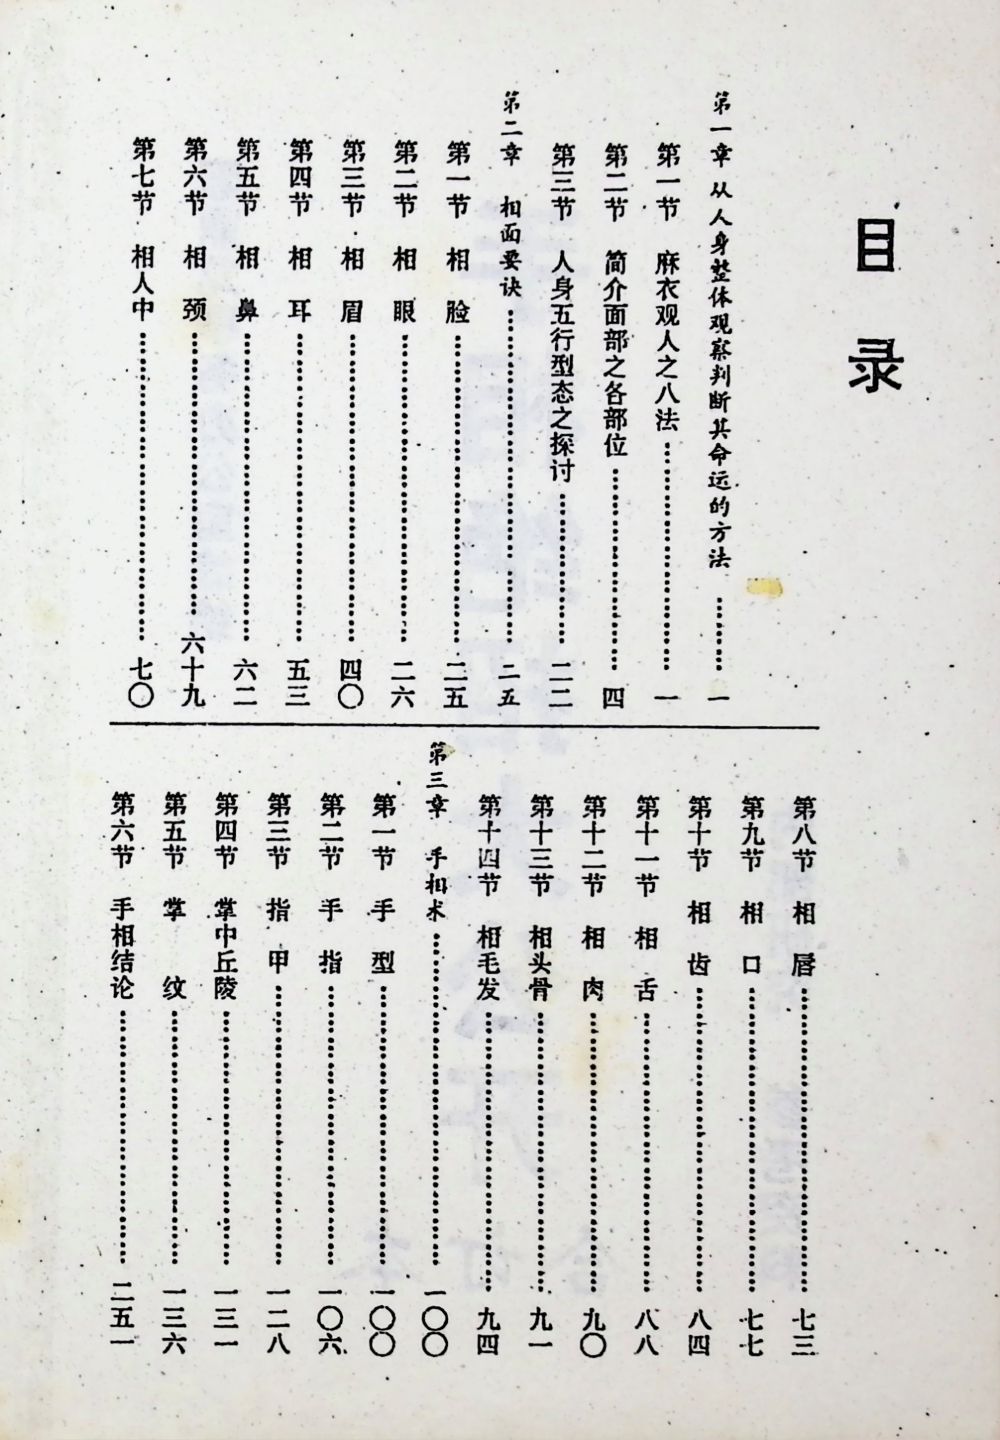 目录
第一章 从人身整体观察判断其命运的方法………一
第一节 麻衣观人之八法………一
第二节 简介面部之各部位………四
第三节 人身五行型态之探讨………二二
第二章 相面要诀………二五
第一节 相脸………二五
第二节 相眼………二六
第三节 相眉………四〇
第四节 相耳………五三
第五节 相鼻………六二
第六节 相颈………六十九
第七节 相人中………七〇
第八节 相唇………七三
第九节 相口………七七
第十节 相齿………八四
第十一节 相舌………八八
第十二节 相肉………九〇
第十三节 相头骨………九一
第十四节 相毛发………九四
第三章 手相术………一〇〇
第一节 手型………一〇〇
第二节 手指………一〇六
第三节 指甲………一二八
第四节 掌中丘陵………一三一
第五节 掌纹………一三六
第六节 手相结论………二五一